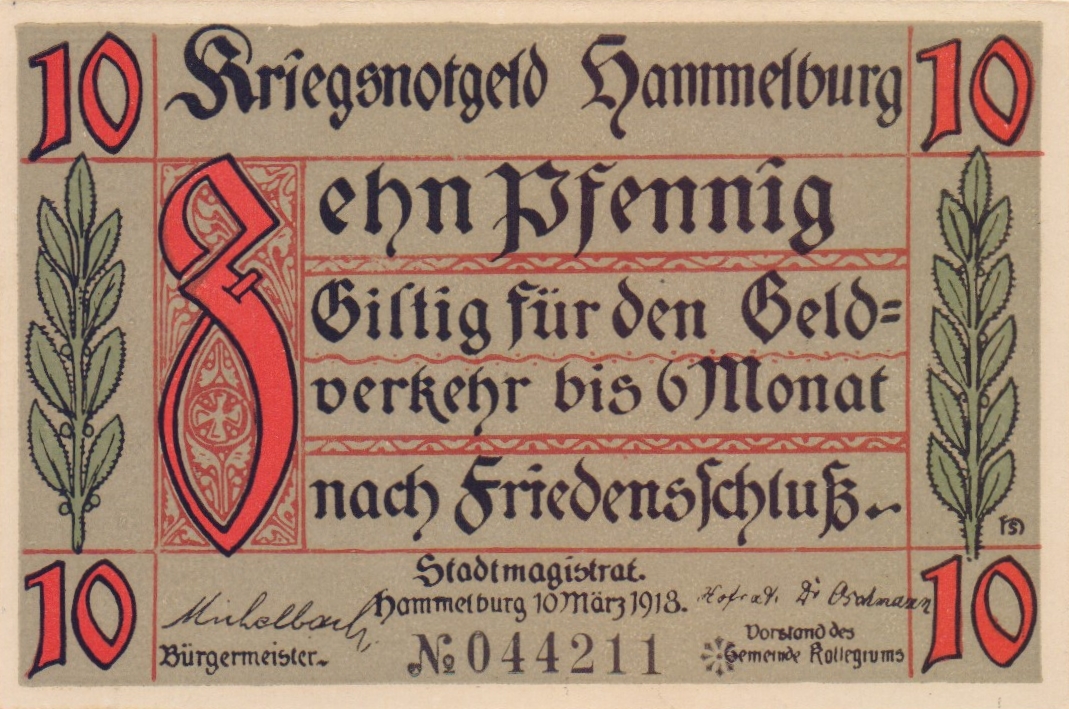 10 Kriegsnotgeld Hammelburg 10
Zehn Pfennig
Giltig für den Geld=
verkehr bis 6 Monat
nach Friedensschluß.
Stadtmagistrat.
Hammelburg 10 März 1918.
Michelbach
Hofrat. Dr
Bürgermeister.
Vorstand des
Gemeinde Kollegiums
№ 044211
10 10